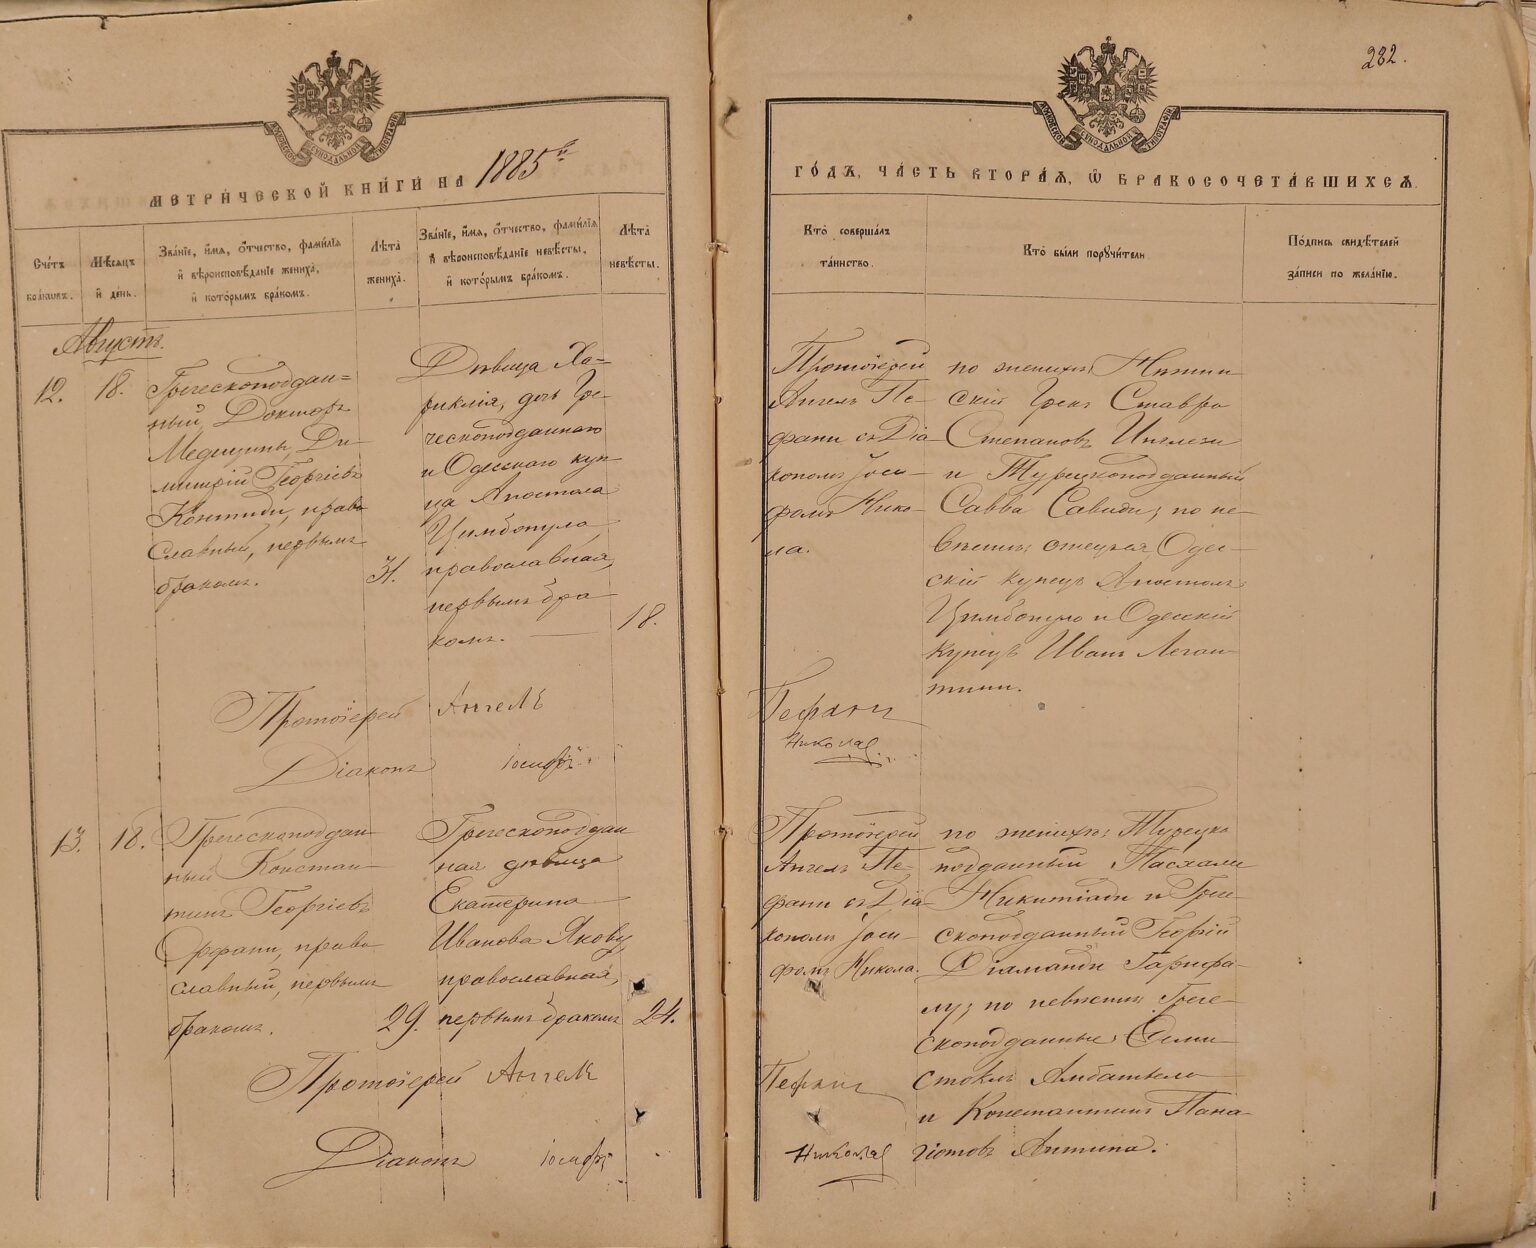 282.
МЕТРИ́ЧЕСКОЙ КНИ́ГИ НА 1885й
ГО́ДЪ, ЧА́СТЬ ВТОРА́Ѧ, Ѽ БРАКОСОЧЕТА́ВШИХСѦ.
Сче́тъ браковъ.
Мѣ́сѧцъ и҆ де́нь.
Зва́нїе, и҆́мѧ, ѻ҆́тчество, фами́лїѧ
и҆ вѣроисповѣ́данїе жениха̀,
и҆ кото́рымъ бра́комъ.
Лѣ́та жениха̀.
Зва́нїе, и҆́мѧ, ѻ҆́тчество, фами́лїѧ
и҆ вѣроисповѣ́данїе невѣ́сты,
и҆ кото́рымъ бра́комъ.
Лѣ́та невѣ́сты.
Кто̀ соверша́лъ
та́инство.
Кто̀ бы́ли порꙋчи́тели
По́дпись свидѣ́телей
за́писи по жела́нїю.
Августъ.
12.
18.
Греческоподдан=
ный, Докторъ
Медицины, Ди-
митрій Георгіевъ
Контиди, право
славный, первымъ
бракомъ.
31.
Дѣвица Ха=
риклія, дочь Гре-
ческоподданнаго
и Одесскаго куп-
ца Апостола
Цимбопула,
православная,
первымъ бра
комъ.
18.
Протоіерей
Ангелъ Пе-
фани съ Діа-
кономъ Іоси-
фомъ Нико-
ла.
по женихѣ Нѣжин
скій Грекъ Ставро
Степановъ Инглези
и Турецкоподданный
Савва Савиди; по не-
вѣстѣ отецъ ея Одес-
скій купецъ Апостолъ
Цимбопуло и Одесскій
купецъ Иванъ
Протоіерей Ангелъ Пефани
Діаконъ Іосифъ Никола
13.
18.
Греческоподдан
ный Констан-
тинъ Георгіевъ
Орфани, право
славный, первымъ
бракомъ.
29.
Греческоподдан
ная дѣвица
Екатерина
Иванова Якову,
православная,
первымъ бракомъ
24.
Протоіерей
Ангелъ Пе-
фани съ Діа
кономъ Іоси-
фомъ Никола.
по женихѣ Турецко
подданный Пасхали
Никитіади и Грече
скоподданный Георгій
Діаманди Гарифа-
лу; по невѣстѣ Грече-
скоподданные Ѳеми
стоклъ Амбатьело
и Константинъ Пана-
гіотовъ Антипа.
Протоіерей Ангелъ Пефани
Діаконъ Іосифъ Никола